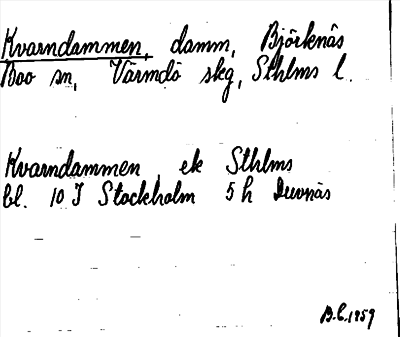 Kvarndammen, damm, Björknäs
Boo sn, Värmdö skg, Sthlms l.
Kvarndammen ek Sthlms
bl. 10 I Stockholm 5 h Duvnäs
B.C. 1959